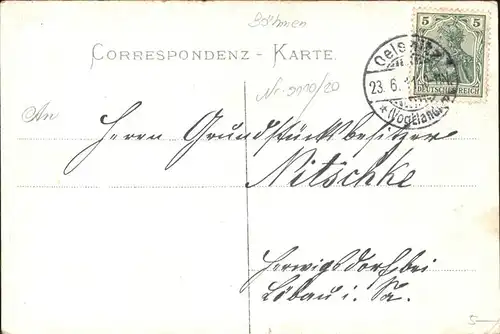 Böhmen
CORRESPONDENZ - KARTE.
5 5
DEUTSCHES REICH
Oelsnitz
23.6.
(Vogtland)
An
Herrn Grundstücksbesitzer
Nitschke
Herwigsdorf bei
Löbau i. Sa.
5-